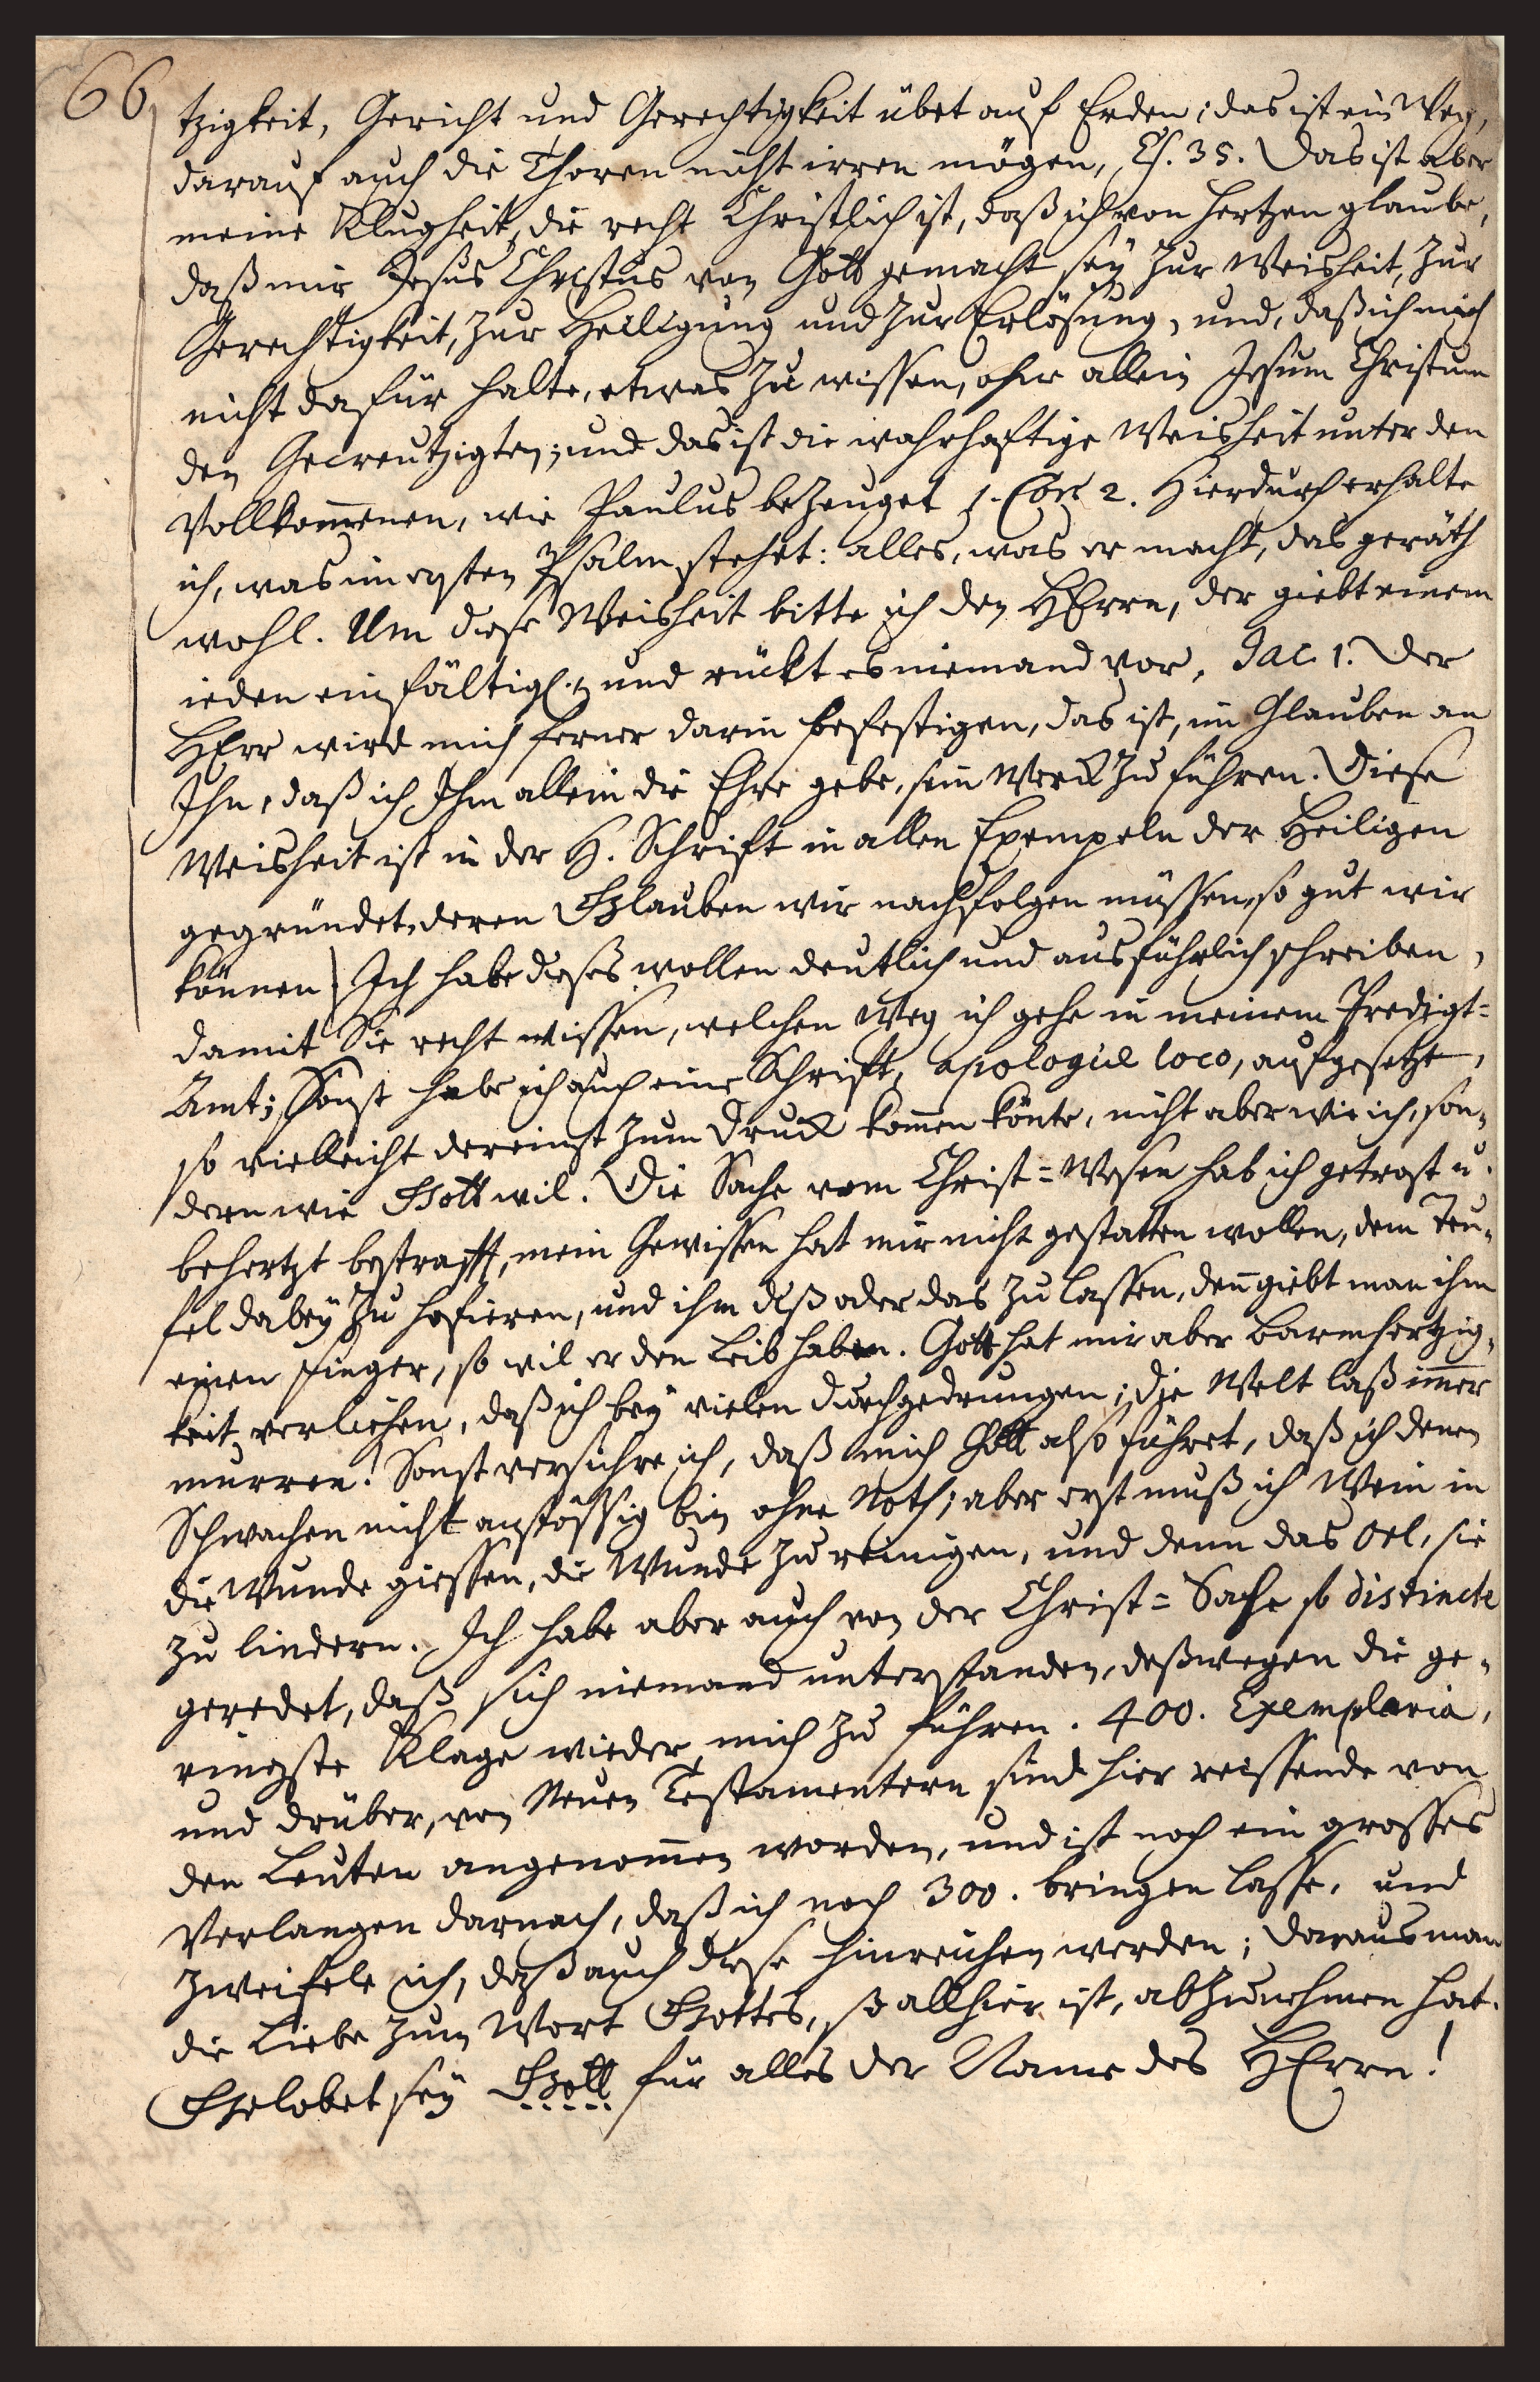 66
tzigkeit, Gericht und Gerechtigkeit übet auf Erden; das ist ein Weg,
darauf auch die Thoren nicht irren mögen, Es. 35. Das ist aber
meine Klugheit, die recht Christlich ist, daß ich von Hertzen glaube,
daß mir Jesus Christus von Gott gemacht sey zur Weisheit, zur
Gerechtigkeit, zur Heiligung und zur Erlösung, und, daß ich mich
nicht dafür halte, etwas zu wissen, ohne allein Jesum Christum
den Gecreutzigten; und das ist die wahrhaftige Weisheit unter den
Vollkom̅enen, wie Paulus bezeuget 1. Cor. 2. Hierdurch erhalte
ich, was im ersten Psalm stehet: alles, was er macht, das geräth
wohl. Um diese Weisheit bitte ich den HErrn, der giebt einem
ieden einfältigl. und rückt es niemand vor, Jac. 1. Der
HErr wird mich ferner darin befestigen, das ist, im Glauben an
Ihn, daß ich Ihm allein die Ehre gebe, sein Werck zu führen. Diese
Weisheit ist in der H. Schrift in allen Exempeln der Heiligen
gegründet, deren Glauben wir nachfolgen müssen, so gut wir
können Ich habe dieses wollen deutlich und ausführlich schreiben,
damit Sie recht wissen, welchen Weg ich gehe in meinem Predigt=
Amt; Sonst habe ich auch eine Schrift, apologiæ loco, aufgesetzt,
so vielleicht dereinst zum Druck kom̅en könte, nicht aber wie ich, son-
dern wie Gott wil. Die Sache vom Christ=Wesen hab ich getrost u.
behertzt bestrafft, mein Gewissen hat mir nicht gestatten wollen, dem Teu-
fel dabey zu hofieren, und ihm diß oder das zu lassen, den̅ giebt man ihm
einen Finger, so wil er den Leib haben. Gott hat mir aber Barmhertzig-
keit verliehen, daß ich bey vielen durchgedrungen; die Welt laß im̅er
murren! Sonst versichre ich, daß mich Gott also führet, daß ich denen
Schwachen nicht anstössig bin ohne Noth; aber erst muß ich Wein in
die Wunde giessen, die Wunde zu reinigen, und denn das Oel, sie
zu lindern. Ich habe aber auch von der Christ=Sache so distincte
geredet, daß sich niemand unterstanden, deßwegen die ge-
ringste Klage wieder mich zu führen. 400. Exemplaria,
und drüber, von Neuen Testamentern sind hier reissende von
den Leuten angenom̅en worden, und ist noch ein grosses
Verlangen darnach, daß ich noch 300. bringen lasse, und
zweifele ich, daß auch diese hinreichen werden; daraus man
die Liebe zum Wort Gottes, so allhier ist, abzunehmen hat.
Gelobet sey Gott für alles der Name des HErrn!